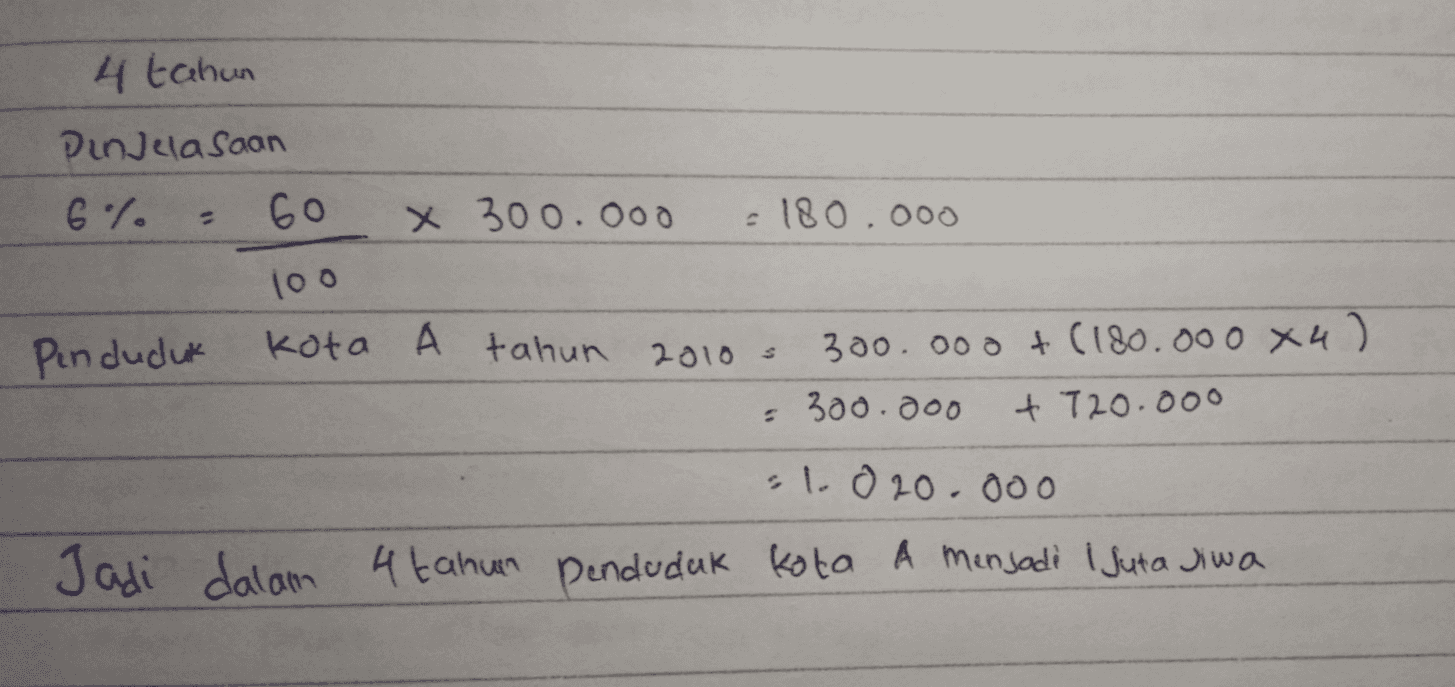 4 tahun
Penjelasaan
6% = 60 x 300.000 = 180.000
100
Penduduk kota A tahun 2010 = 300.000 + (180.000 x 4)
= 300.000 + 720.000
= 1.020.000
Jadi dalam 4 tahun penduduk kota A menjadi 1 juta jiwa